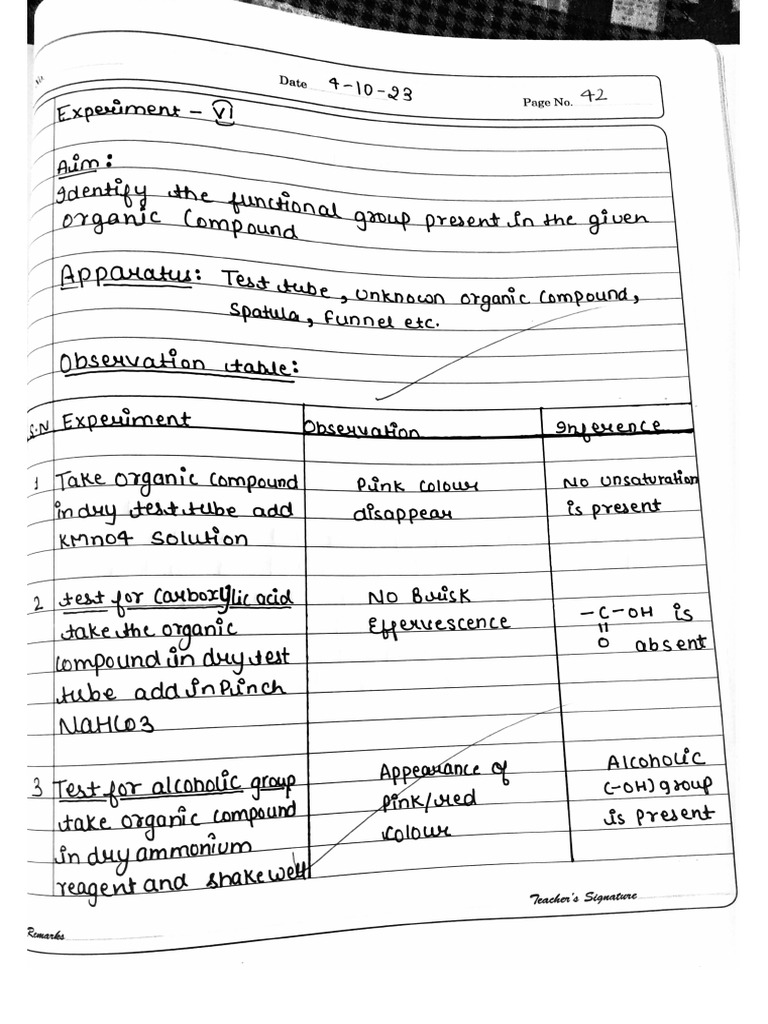 Date 4-10-23
Page No. 42
Experiment - VI
Aim:
Identify the functional group present in the given
organic compound
Apparatus: Test tube, unknown organic compound,
spatula, funnel etc.
Observation table:
S.N Experiment Observation Inference
1 Take organic compound Pink colour No unsaturation
in dry test tube add disappear is present
KMnO4 solution
2 test for carboxylic acid No Brisk -C-OH is
take the organic Effervescence || 
compound in dry test O absent
tube add in Pinch
NaHCO3
3 Test for alcoholic group Appearance of Alcoholic
take organic compound pink/red (-OH) group
in dry ammonium colour is present
reagent and shake well
Teacher's Signature
Remarks